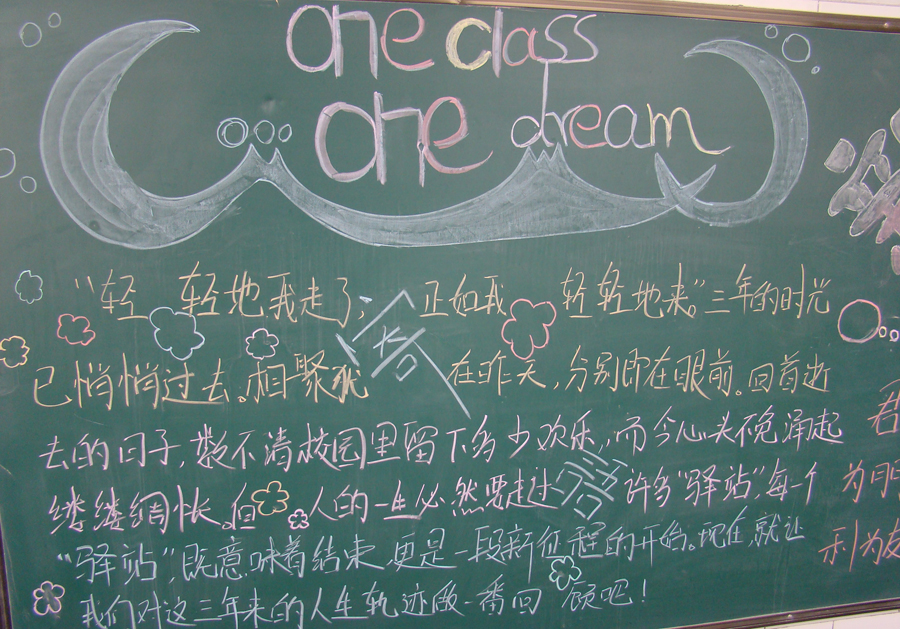 one class
one dream
“轻 轻地我走了, 正如我 轻轻地来。”三年的时光
已悄悄过去。相聚犹 在昨天,分别即在眼前。回首逝
去的日子,数不清校园里留下多少欢乐,而今心头不免涌起
缕缕惆怅。但 人的一生必然要走过 许多“驿站”,每一个
“驿站”,既意味着结束,更是一段新征程的开始。现在,就让
我们对这三年来的人生轨迹做一番回 顾吧!
君
为同
利为友